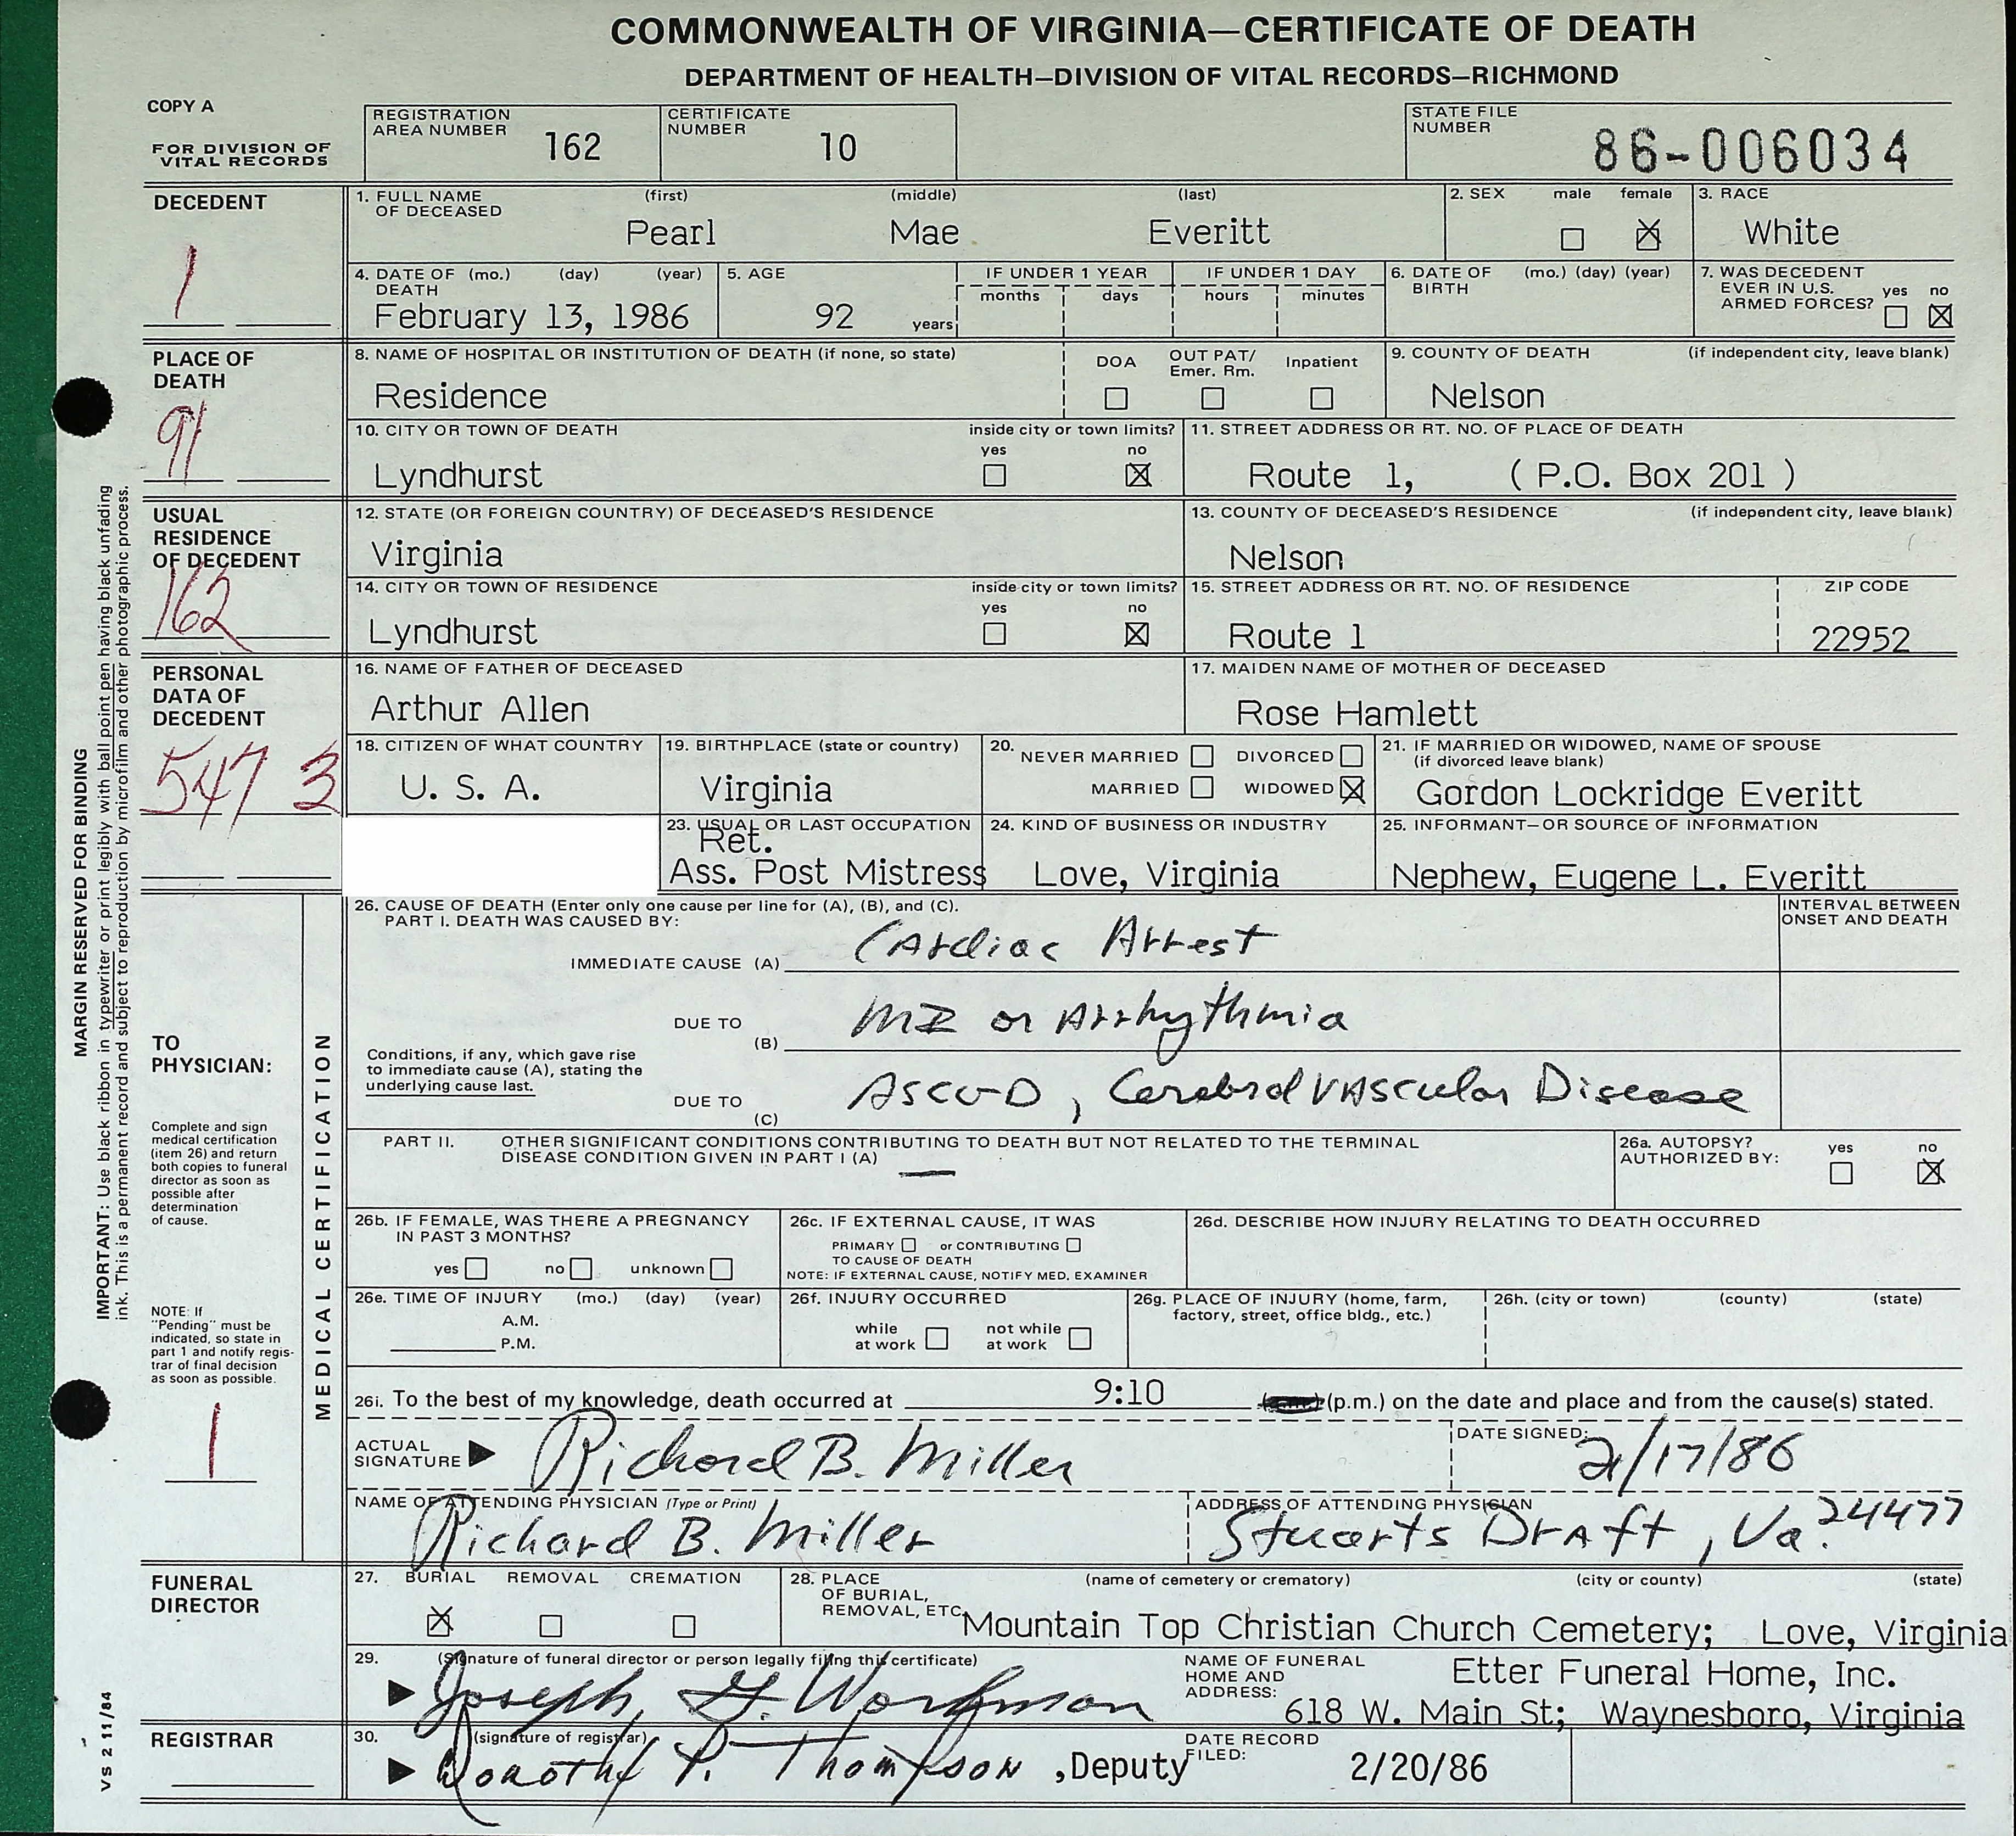 COMMONWEALTH OF VIRGINIA—CERTIFICATE OF DEATH
DEPARTMENT OF HEALTH—DIVISION OF VITAL RECORDS—RICHMOND
COPY A
FOR DIVISION OF VITAL RECORDS
REGISTRATION AREA NUMBER 162
CERTIFICATE NUMBER 10
STATE FILE NUMBER 86-006034
DECEDENT
1
1. FULL NAME OF DECEASED (first) (middle) (last)
Pearl Mae Everitt
2. SEX male female ☒
3. RACE
White
4. DATE OF DEATH (mo.) (day) (year)
February 13, 1986
5. AGE
92 years
IF UNDER 1 YEAR
months days
IF UNDER 1 DAY
hours minutes
6. DATE OF BIRTH (mo.) (day) (year)
7. WAS DECEDENT EVER IN U.S. ARMED FORCES? yes ☐ no ☒
PLACE OF DEATH
91
8. NAME OF HOSPITAL OR INSTITUTION OF DEATH (if none, so state)
Residence
DOA ☐ OUT PAT/ Emer. Rm. ☐ Inpatient ☐
9. COUNTY OF DEATH (if independent city, leave blank)
Nelson
10. CITY OR TOWN OF DEATH
Lyndhurst
inside city or town limits?
yes ☐ no ☒
11. STREET ADDRESS OR RT. NO. OF PLACE OF DEATH
Route 1, ( P.O. Box 201 )
USUAL RESIDENCE OF DECEDENT
162
12. STATE (OR FOREIGN COUNTRY) OF DECEASED'S RESIDENCE
Virginia
13. COUNTY OF DECEASED'S RESIDENCE (if independent city, leave blank)
Nelson
14. CITY OR TOWN OF RESIDENCE
Lyndhurst
inside city or town limits?
yes ☐ no ☒
15. STREET ADDRESS OR RT. NO. OF RESIDENCE
Route 1
ZIP CODE
22952
PERSONAL DATA OF DECEDENT
547 3
16. NAME OF FATHER OF DECEASED
Arthur Allen
17. MAIDEN NAME OF MOTHER OF DECEASED
Rose Hamlett
18. CITIZEN OF WHAT COUNTRY
U. S. A.
19. BIRTHPLACE (state or country)
Virginia
20. NEVER MARRIED ☐ DIVORCED ☐
MARRIED ☐ WIDOWED ☒
21. IF MARRIED OR WIDOWED, NAME OF SPOUSE
(if divorced leave blank)
Gordon Lockridge Everitt
23. USUAL OR LAST OCCUPATION
Ret.
Ass. Post Mistress
24. KIND OF BUSINESS OR INDUSTRY
Love, Virginia
25. INFORMANT—OR SOURCE OF INFORMATION
Nephew, Eugene L. Everitt
MARGIN RESERVED FOR BINDING
IMPORTANT: Use black ribbon in typewriter or print legibly with ball point pen having black unfading
ink. This is a permanent record and subject to reproduction by microfilm and other photographic process.
TO PHYSICIAN:
Complete and sign
medical certification
(item 26) and return
both copies to funeral
director as soon as
possible after
determination
of cause.
NOTE: If
"Pending" must be
indicated, so state in
part 1 and notify regis-
trar of final decision
as soon as possible.
1
MEDICAL CERTIFICATION
26. CAUSE OF DEATH (Enter only one cause per line for (A), (B), and (C).
PART I. DEATH WAS CAUSED BY:
INTERVAL BETWEEN ONSET AND DEATH
IMMEDIATE CAUSE (A) Cardiac Arrest
DUE TO (B) MI or Arrhythmia
Conditions, if any, which gave rise
to immediate cause (A), stating the
underlying cause last.
DUE TO (C) ASCVD, Cerebral Vascular Disease
PART II. OTHER SIGNIFICANT CONDITIONS CONTRIBUTING TO DEATH BUT NOT RELATED TO THE TERMINAL
DISEASE CONDITION GIVEN IN PART I (A) —
26a. AUTOPSY? AUTHORIZED BY: yes ☐ no ☒
26b. IF FEMALE, WAS THERE A PREGNANCY
IN PAST 3 MONTHS?
yes ☐ no ☐ unknown ☐
26c. IF EXTERNAL CAUSE, IT WAS
PRIMARY ☐ or CONTRIBUTING ☐
TO CAUSE OF DEATH
NOTE: IF EXTERNAL CAUSE, NOTIFY MED. EXAMINER
26d. DESCRIBE HOW INJURY RELATING TO DEATH OCCURRED
26e. TIME OF INJURY (mo.) (day) (year)
A.M.
P.M.
26f. INJURY OCCURRED
while at work ☐ not while at work ☐
26g. PLACE OF INJURY (home, farm,
factory, street, office bldg., etc.)
26h. (city or town) (county) (state)
26i. To the best of my knowledge, death occurred at 9:10 (p.m.) on the date and place and from the cause(s) stated.
ACTUAL SIGNATURE Richard B. Miller
DATE SIGNED: 2/17/86
NAME OF ATTENDING PHYSICIAN (Type or Print)
Richard B. Miller
ADDRESS OF ATTENDING PHYSICIAN
Stuarts Draft, Va. 24477
FUNERAL DIRECTOR
27. BURIAL ☒ REMOVAL ☐ CREMATION ☐
28. PLACE OF BURIAL, REMOVAL, ETC. (name of cemetery or crematory) (city or county) (state)
Mountain Top Christian Church Cemetery; Love, Virginia
29. (Signature of funeral director or person legally filing this certificate)
Joseph G. Workman
NAME OF FUNERAL HOME AND ADDRESS:
Etter Funeral Home, Inc.
618 W. Main St; Waynesboro, Virginia
REGISTRAR
30. (signature of registrar)
Dorothy P. Thompson, Deputy
DATE RECORD FILED: 2/20/86
VS 2 11/84